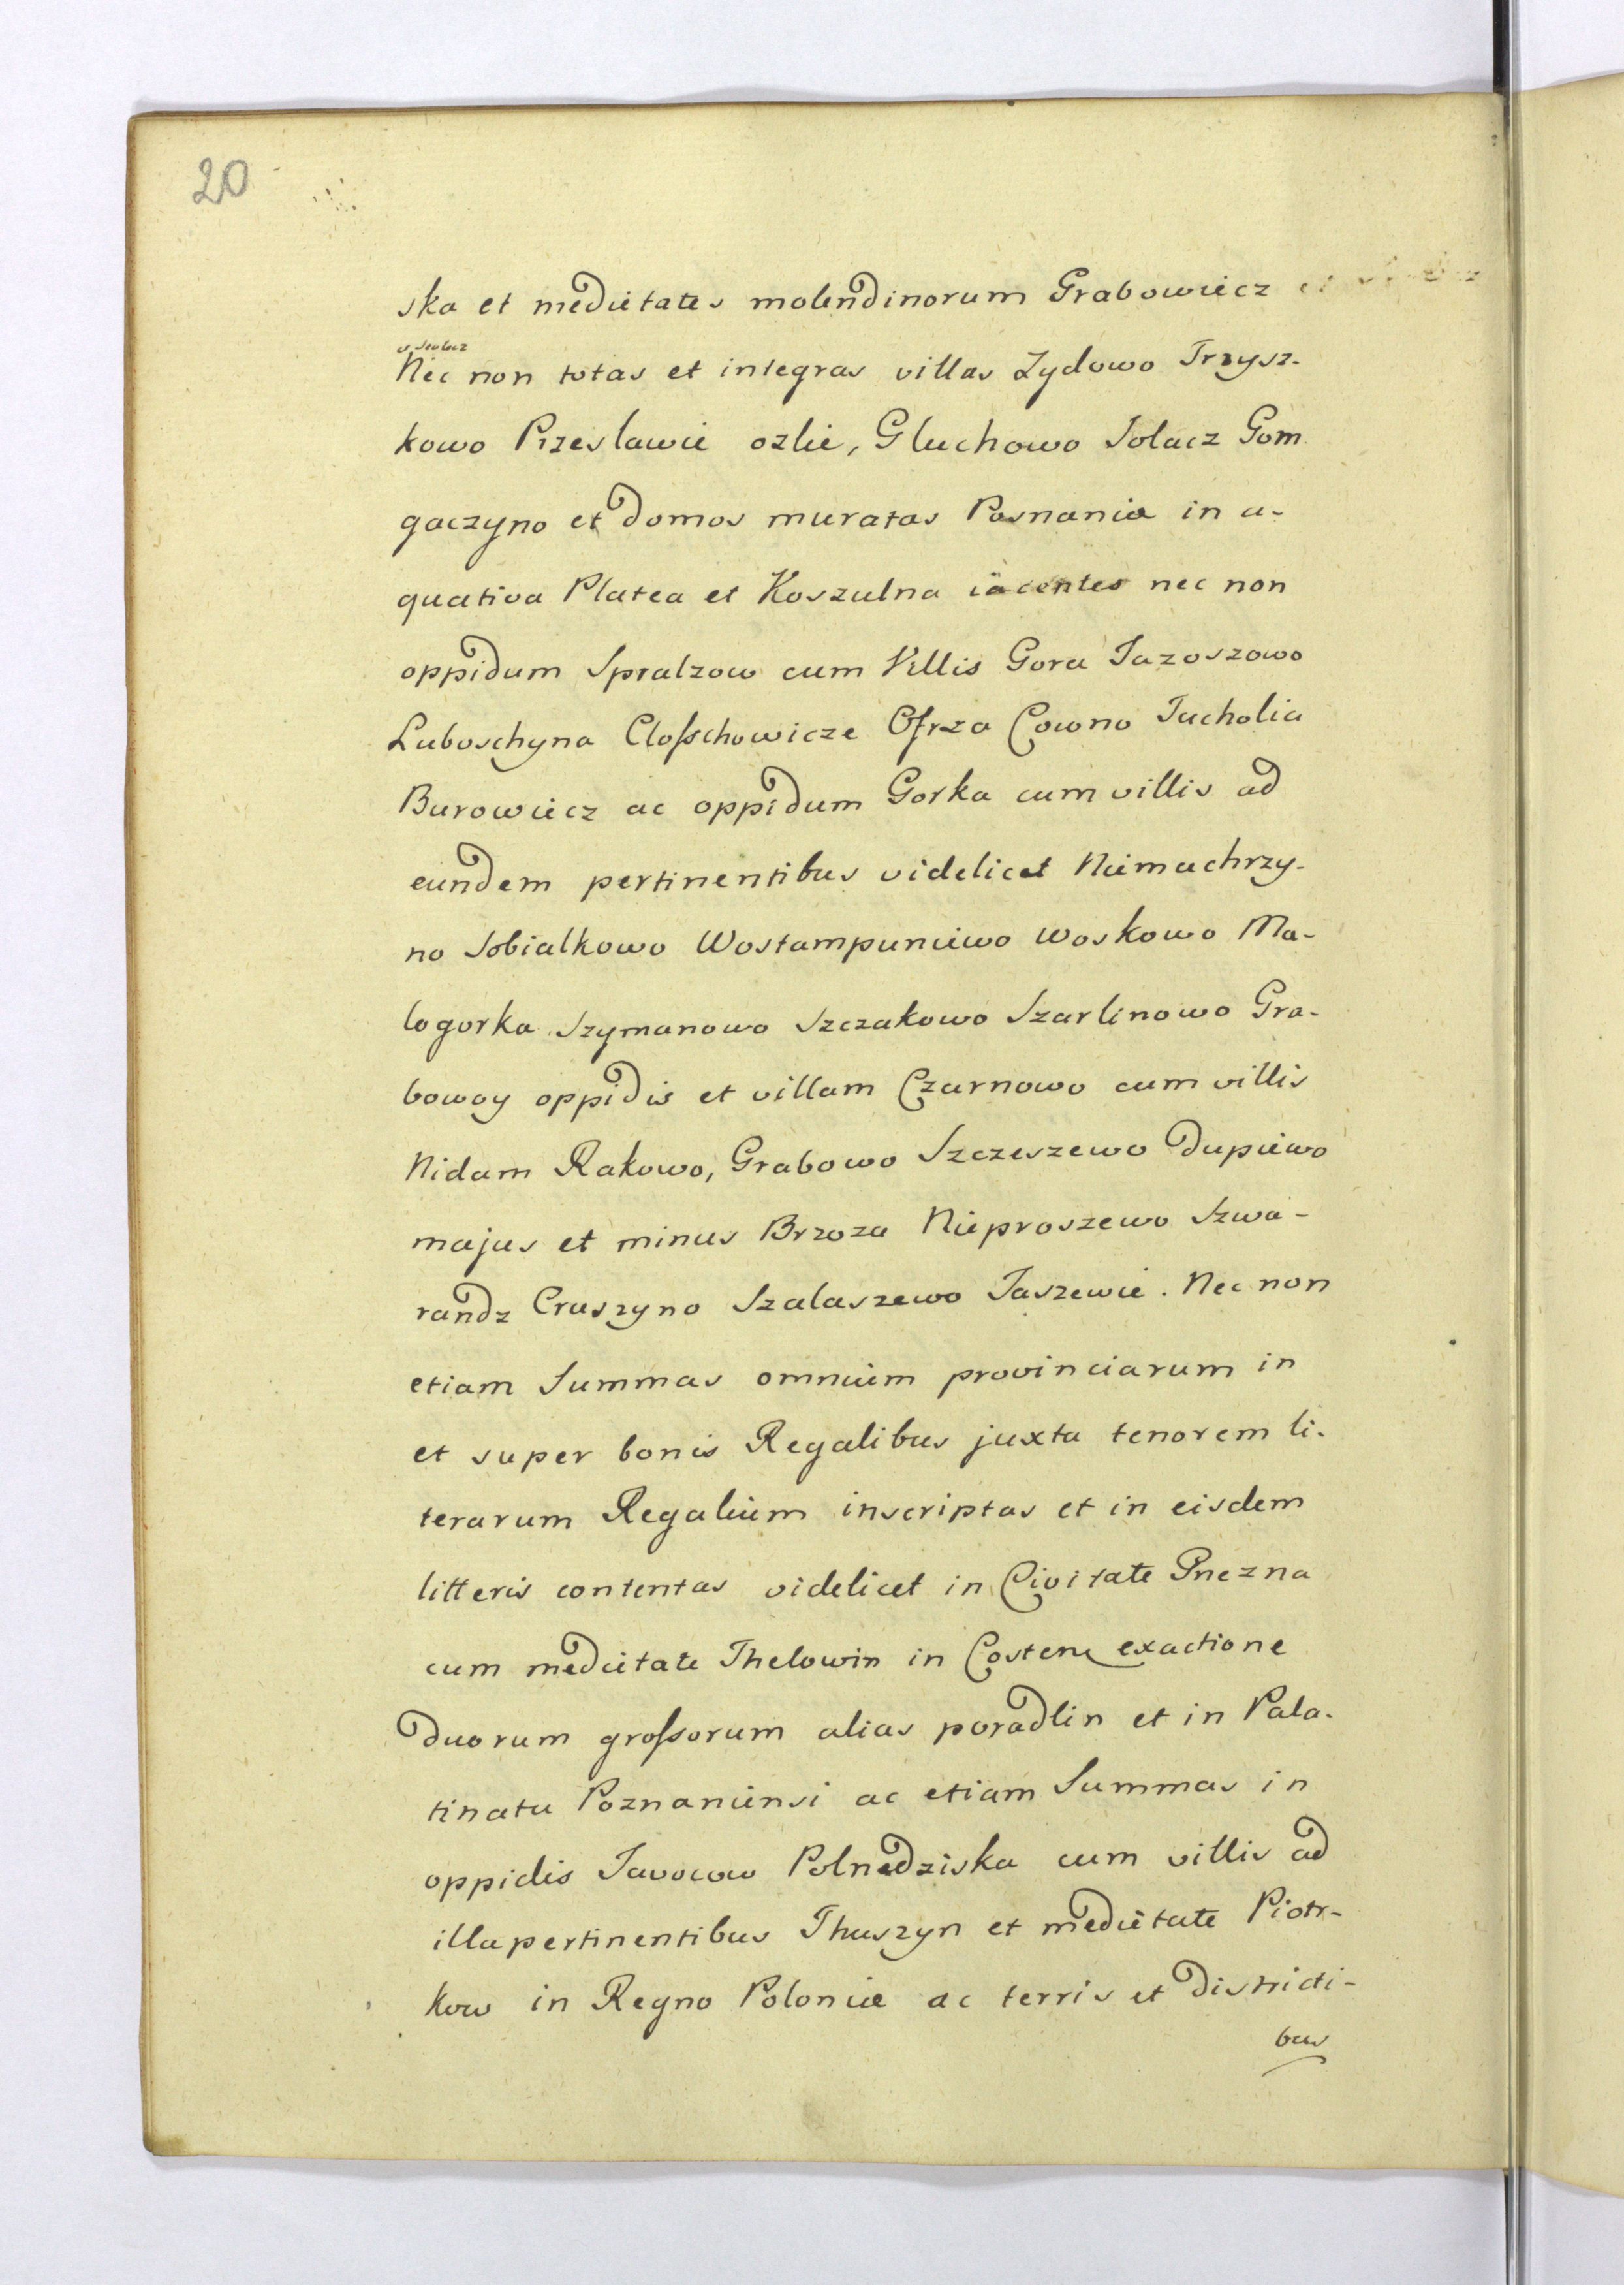 20
ska et medietates molendinorum Grabowiecz et
Nec non totas et integras villas Zydowo Trzysz-
kowo Przeslawie ozlie, Gluchowo Solacz Gom
gaczyno et domos muratas Posnaniæ in a-
quatica Platea et Koszulna iacentes nec non
oppidum Spralzow cum Villis Gora Jazoszowo
Luboschyna Closschowicze Ofrza Cowno Tucholia
Burowiecz ac oppidum Gorka cum villis ad
eundem pertinentibus videlicet Niemachrzy-
no Sobialkowo Wostampuniewo Woskowo Ma-
logorka Szymanowo Szczakowo Szarlinowo Gra-
bowoy oppidis et villam Czarnowo cum villis
Nidam Rakowo, Grabowo Szczeszewo Dupiewo
majus et minus Brzoza Nieproszewo Szwa-
randz Cruszyno Szalaszewo Jaszewie. Nec non
etiam Summas omnium provinciarum in
et super bonis Regalibus juxta tenorem li-
terarum Regalium inscriptas et in eisdem
litteris contentas videlicet in Civitate Gnezna
cum medietate Thelowin in Costen exactione
duorum grossorum alias poradlin et in Pala-
tinatu Poznaniensi ac etiam Summas in
oppidis Javocow Polnedziska cum villis ad
illa pertinentibus Thuszyn et medietate Piotr-
kow in Regno Poloniæ ac terris et districti-
bus